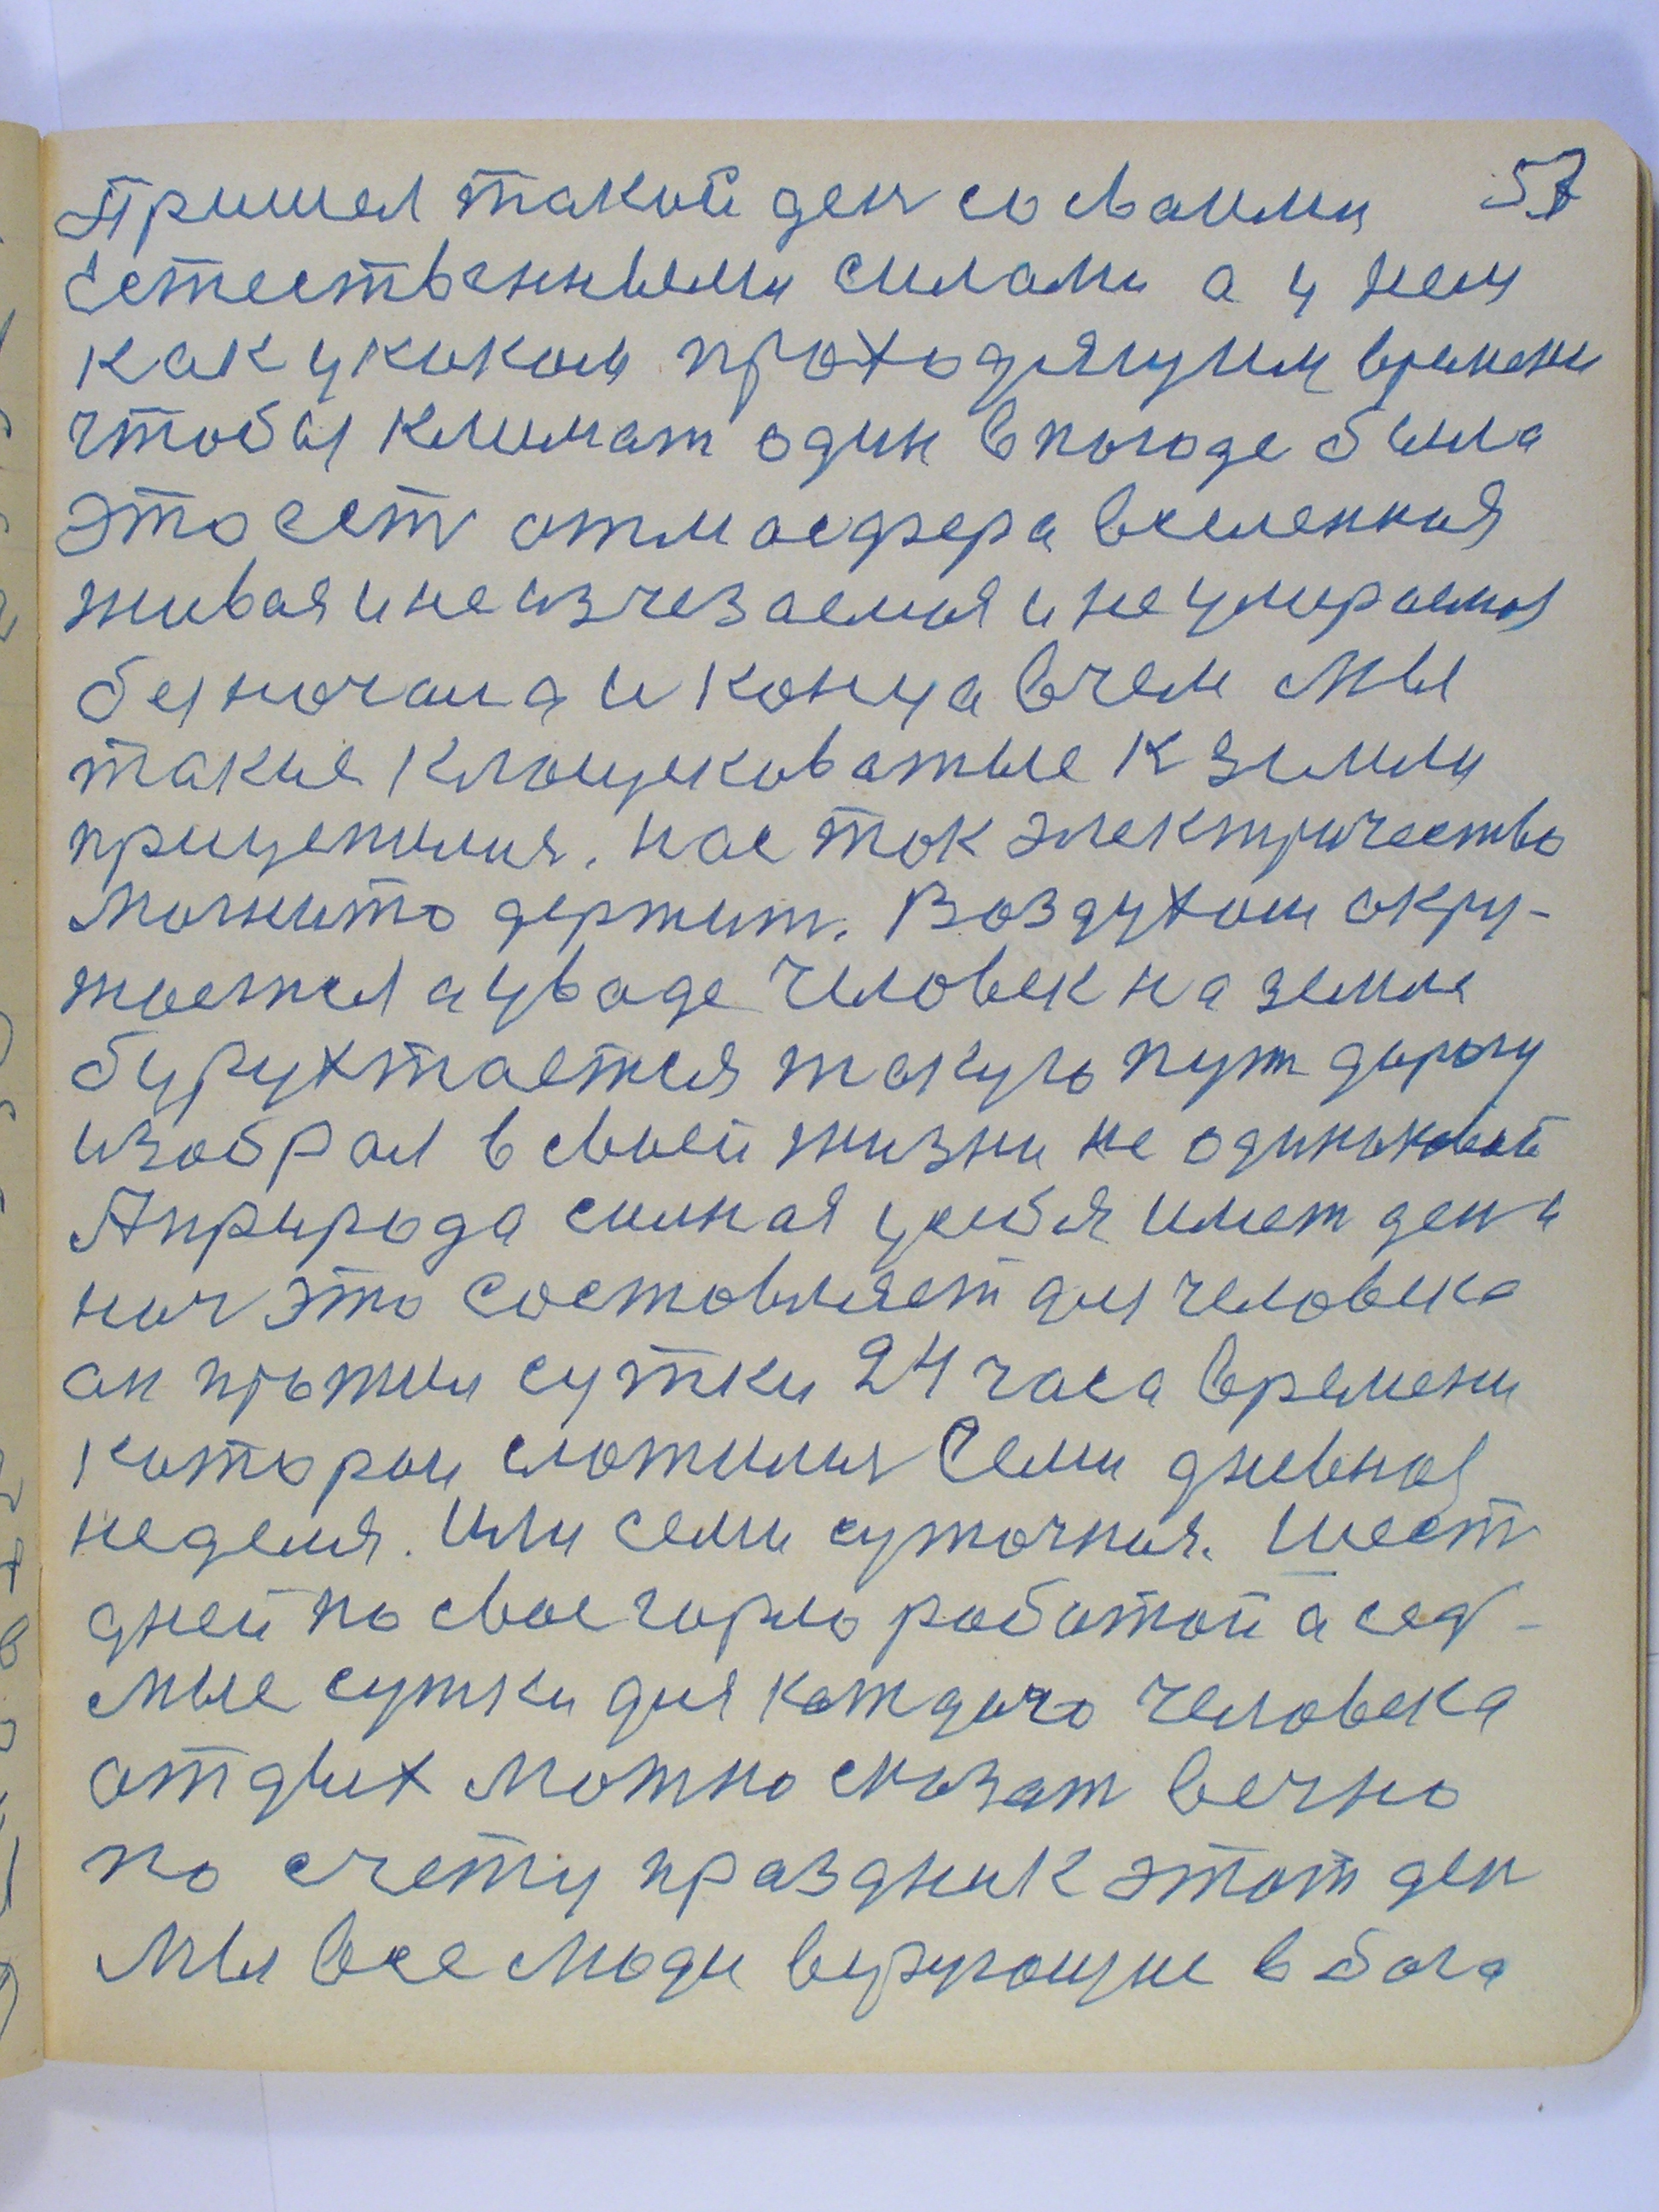 57
Пришел такой ден со своими
Естественными силами а у нем
как укаком проходящуим времени
чтобы климат один впогоде была
это ест отмосфера вселенная
живая и не изчезаемая и не умираемая
безначала и конца вчем мы
такие клощековатые к земли
прицепилис. нас ток электричество
могнито держит. Воздухом окру-
жаетсия а уваде человек на земле
бурухтается такую пут дорогу
изобрал в своей жизни не одинаковой
Априрода силная усибя имет ден и
ноч это состовляет для человека
он прожил сутки 24 часа времени
котором сложилис Семи дневная
неделя. Или семи суточная. Шест
дней по свое горло работой а сед-
мые сутки для каждого человека
отдых можно сказат вечно
по счету праздник этот ден
Мы все люди верующие в бога